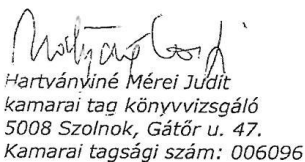 Hartványiné Mérei Judit
kamarai tag könyvvizsgáló
5008 Szolnok, Gátőr u. 47.
Kamarai tagsági szám: 006096